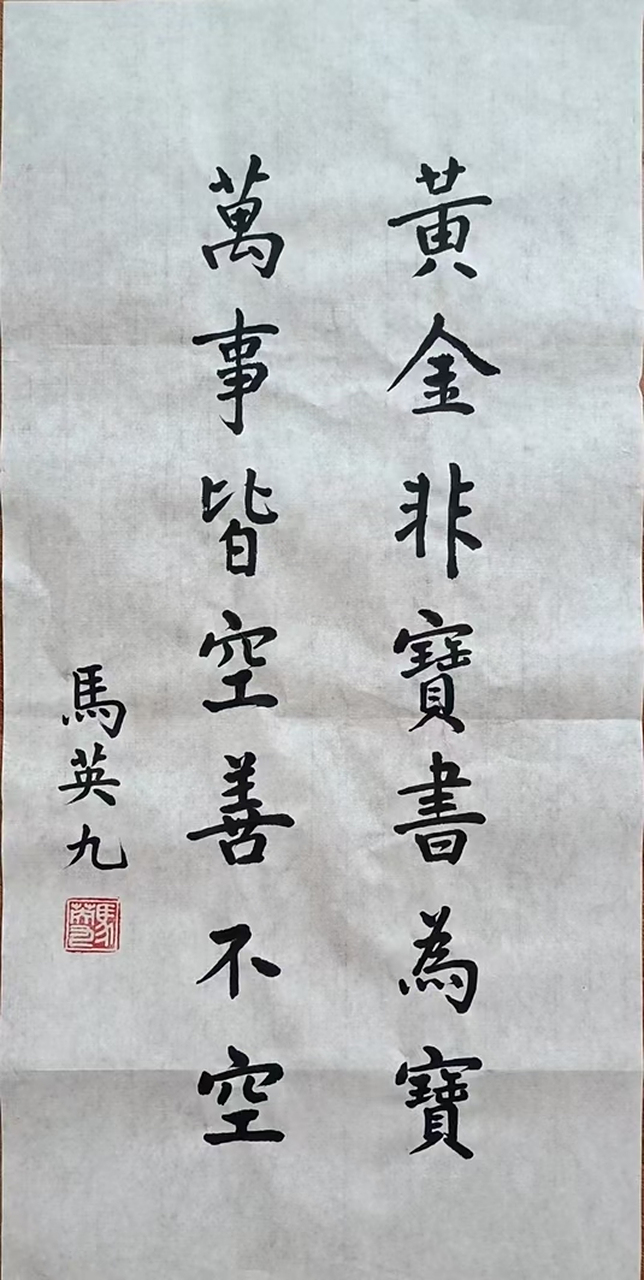 黃金非寶書為寶
萬事皆空善不空
馬英九